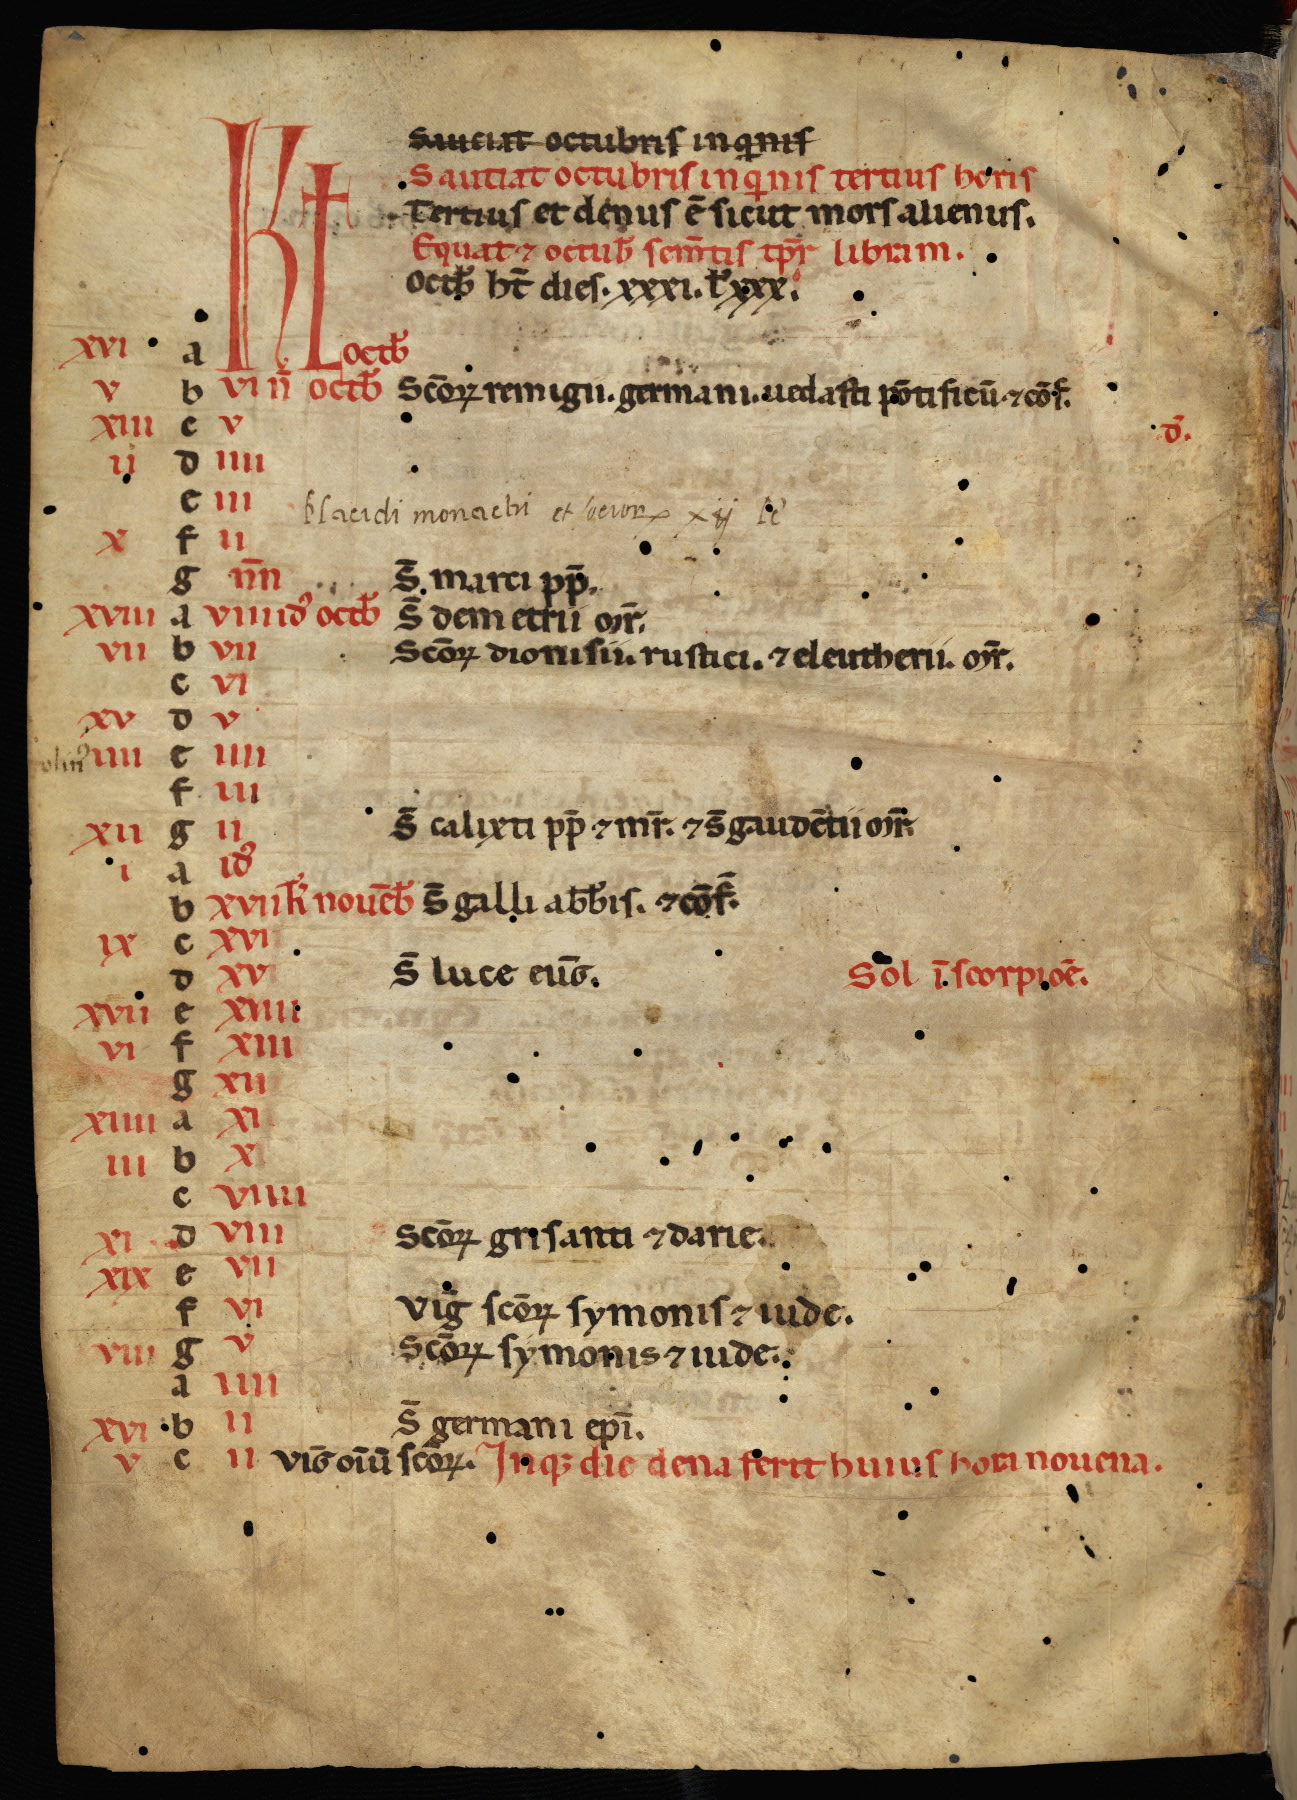 Sauciat octubris inqnis
Sauciat octubris inqnis tertius horis
Tertius et denus ē sicut mors alienus.
Equat ⁊ octub̄ sem̄tis tp̄r libram.
Octb̄ ht̄ dies. xxxi. l̄ xxx.
KL
xvi a octb̄
v b vi n̄ octb̄ Scōꝝ remigii. germani. uedasti pōtificū ⁊ cōf.
xiii c v
ii d iiii
e iii placidi monachi et socioꝝ xij lc
x f ii
g n̄n S̄. marci pp̄.
xviii a viii id̄ octb̄ S̄ demetrii mr̄.
vii b vii Scōꝝ dionisii. rustici. ⁊ eleutherii. mr̄.
c vi
xv d v
iiii e iiii
f iii
xii g ii S̄ calixti pp̄ ⁊ mr̄. ⁊ S̄ gaudētii mr̄.
i a id̄
b xvii k̄ nouēb̄ S̄ galli abb̄is. ⁊ cōf.
ix c xvi
d xv S̄ luce euḡ. Sol ī scorpioē.
xvii e xiiii
vi f xiii
g xii
xiiii a xi
iii b x
c viiii
xi d viii Scōꝝ grisanti ⁊ darie.
xix e vii
f vi Viḡ scōꝝ symonis ⁊ iude.
viii g v Scōꝝ symonis ⁊ iude.
a iiii
xvi b ii S̄ germani epī.
v c ii viḡ oīū scōꝝ. Inqꝫ die dena ferit huius hora nouena.